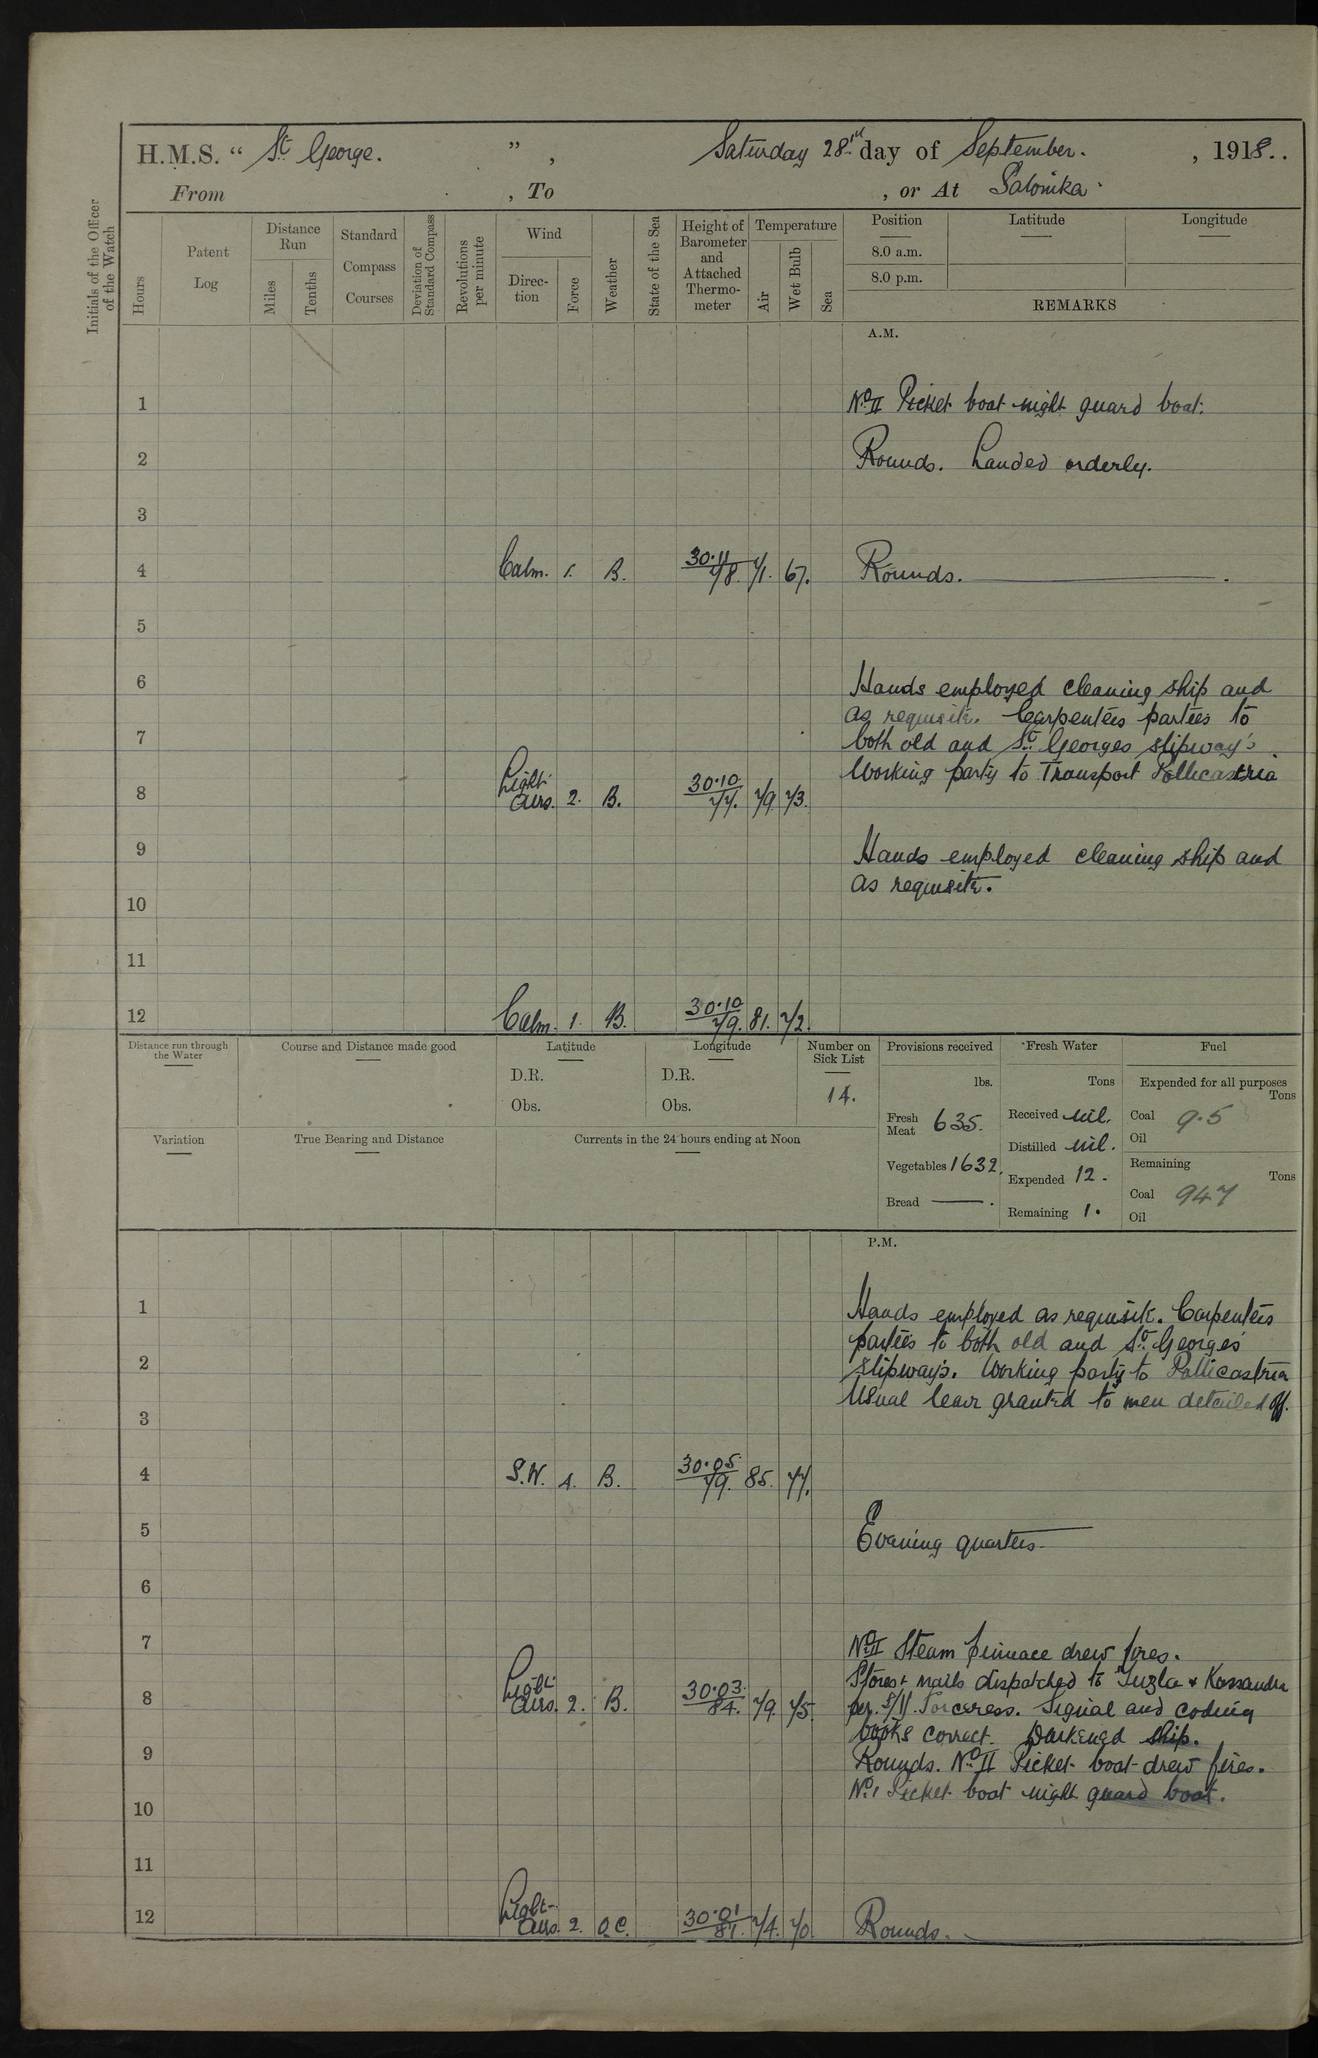 H.M.S. “ St George. ” , Saturday 28th day of September. , 1918..
From , To , or At Salonika.
Initials of the Officer of the Watch
Hours
Patent Log
Distance Run
Miles
Tenths
Standard Compass Courses
Deviation of Standard Compass
Revolutions per minute
Wind
Direction
Force
Weather
State of the Sea
Height of Barometer and Attached Thermometer
Temperature
Air
Wet Bulb
Sea
Position Latitude Longitude
8.0 a.m.
8.0 p.m.
REMARKS
A.M.
1 No II Picket boat night guard boat.
2 Rounds. Landed orderly.
3
4 Calm. 1. B. 30.11 78. 71. 67. Rounds.
5
6 Hands employed cleaning ship and
as requisite. Carpenters parties to
7 both old and St Georges slipway's.
Working party to Transport Pollicastria
8 Light airs. 2. B. 30.10 77. 79. 73.
9 Hands employed cleaning ship and
as requisite.
10
11
12 Calm. 1. B. 30.10 79. 81. 72.
Distance run through the Water
Course and Distance made good
Latitude
D.R.
Obs.
Longitude
D.R.
Obs.
Number on Sick List
14.
Variation
True Bearing and Distance
Currents in the 24 hours ending at Noon
Provisions received
lbs.
Fresh Meat 635.
Vegetables 1632.
Bread —.
Fresh Water
Tons
Received nil.
Distilled nil.
Expended 12.
Remaining 1.
Fuel
Expended for all purposes
Tons
Coal 9.5
Oil
Remaining
Tons
Coal 947
Oil
P.M.
1 Hands employed as requisite. Carpenters
parties to both old and St Georges
2 slipway's. Working party to Pollicastria
Usual leave granted to men detailed off.
3
4 S.W. 4. B. 30.05 79. 85. 77.
5 Evening quarters
6
7 No II Steam pinnace drew fires.
Stores & mails dispatched to Tuzla & Kassandra
8 Light airs. 2. B. 30.03. 84. 79. 75. per. S/V. Sorceress. Signal and coding
books correct. Darkened ship.
9 Rounds. No II Picket boat drew fires.
No 1 Picket boat night guard boat.
10
11
12 Light airs. 2. O.C. 30.01 81. 74. 70. Rounds.